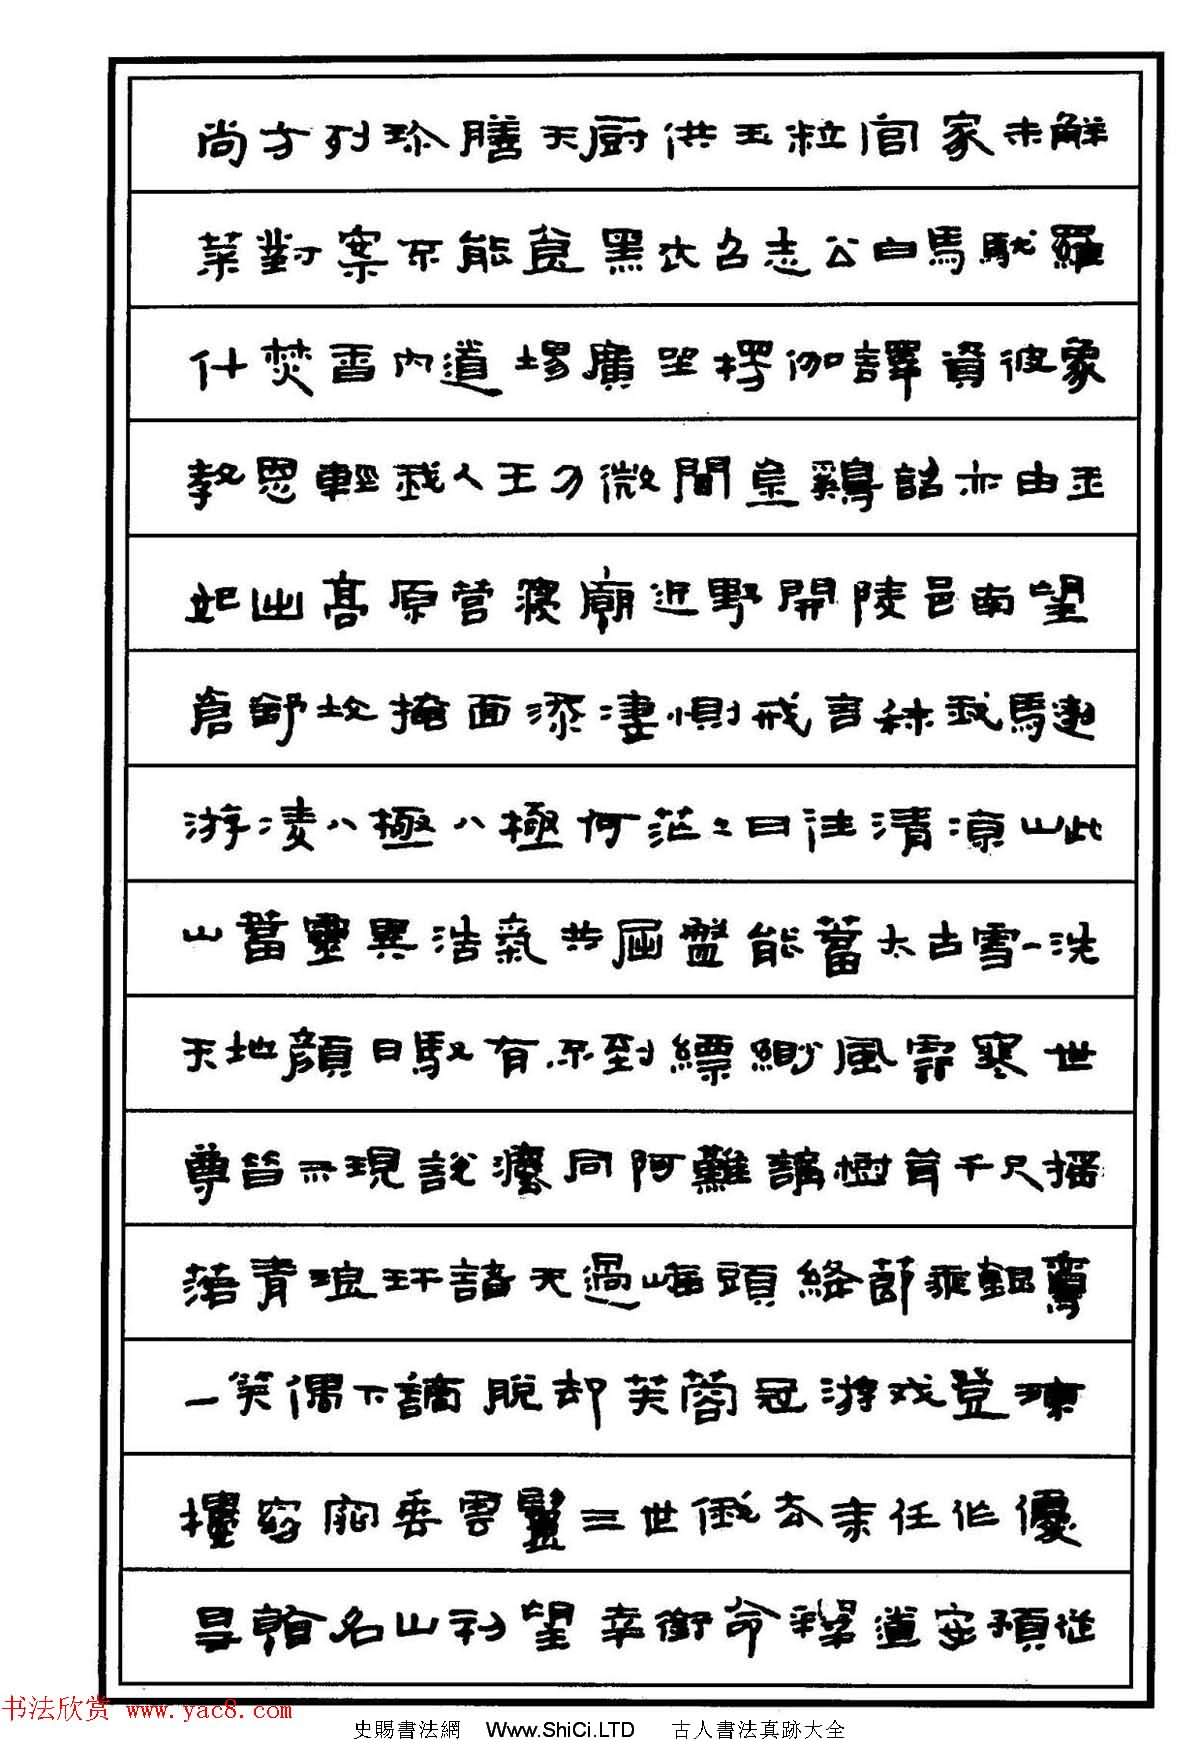 尚方列珍膳天廚供玉粒官家未解
菜對案不能食黑衣召志公白馬馱羅
什焚香内道場廣坐楞伽譯資彼象
教恩輕我人王力微聞金鷄詔亦由玉
妃出高原營寢廟近野開陵邑南望
倉舒坟掩面添凄惻戒言秣我馬遨
游凌八極八極何茫々曰往清凉山此
山蓄靈異浩氣共屈盤能蓄太古雪一洗
天地顔日馭有不到縹緲風雲寒世
尊昔示現說法同阿難講樹聳千尺摇
落青琅玕諸天過峰頭絳節乘銀鸞
一笑偶下謫脱却芙蓉冠游戏登瓊
樓窈窕垂雲鬟三世俄去来任作優
曇看名山初望幸銜命釋道安預從
书法欣赏 www.yac8.com
史賜書法網 Www.ShiCi.LTD 古人書法真跡大全